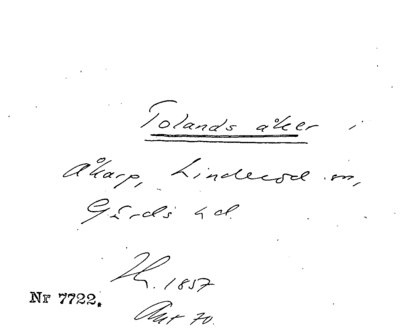 Tolands åker i
Åkarp, Linderöd sn,
Gärds hd.
1857
Nr 7722.
Akt 70.